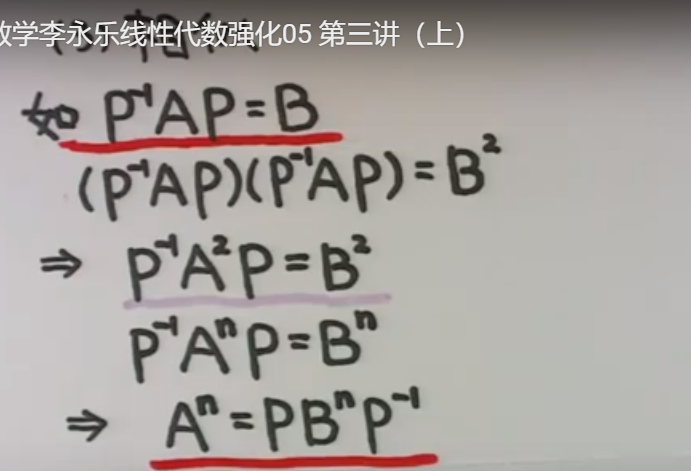 数学李永乐线性代数强化05 第三讲（上）
如 P⁻¹AP=B
(P⁻¹AP)(P⁻¹AP)=B²
⇒ P⁻¹A²P=B²
P⁻¹AⁿP=Bⁿ
⇒ Aⁿ=PBⁿP⁻¹